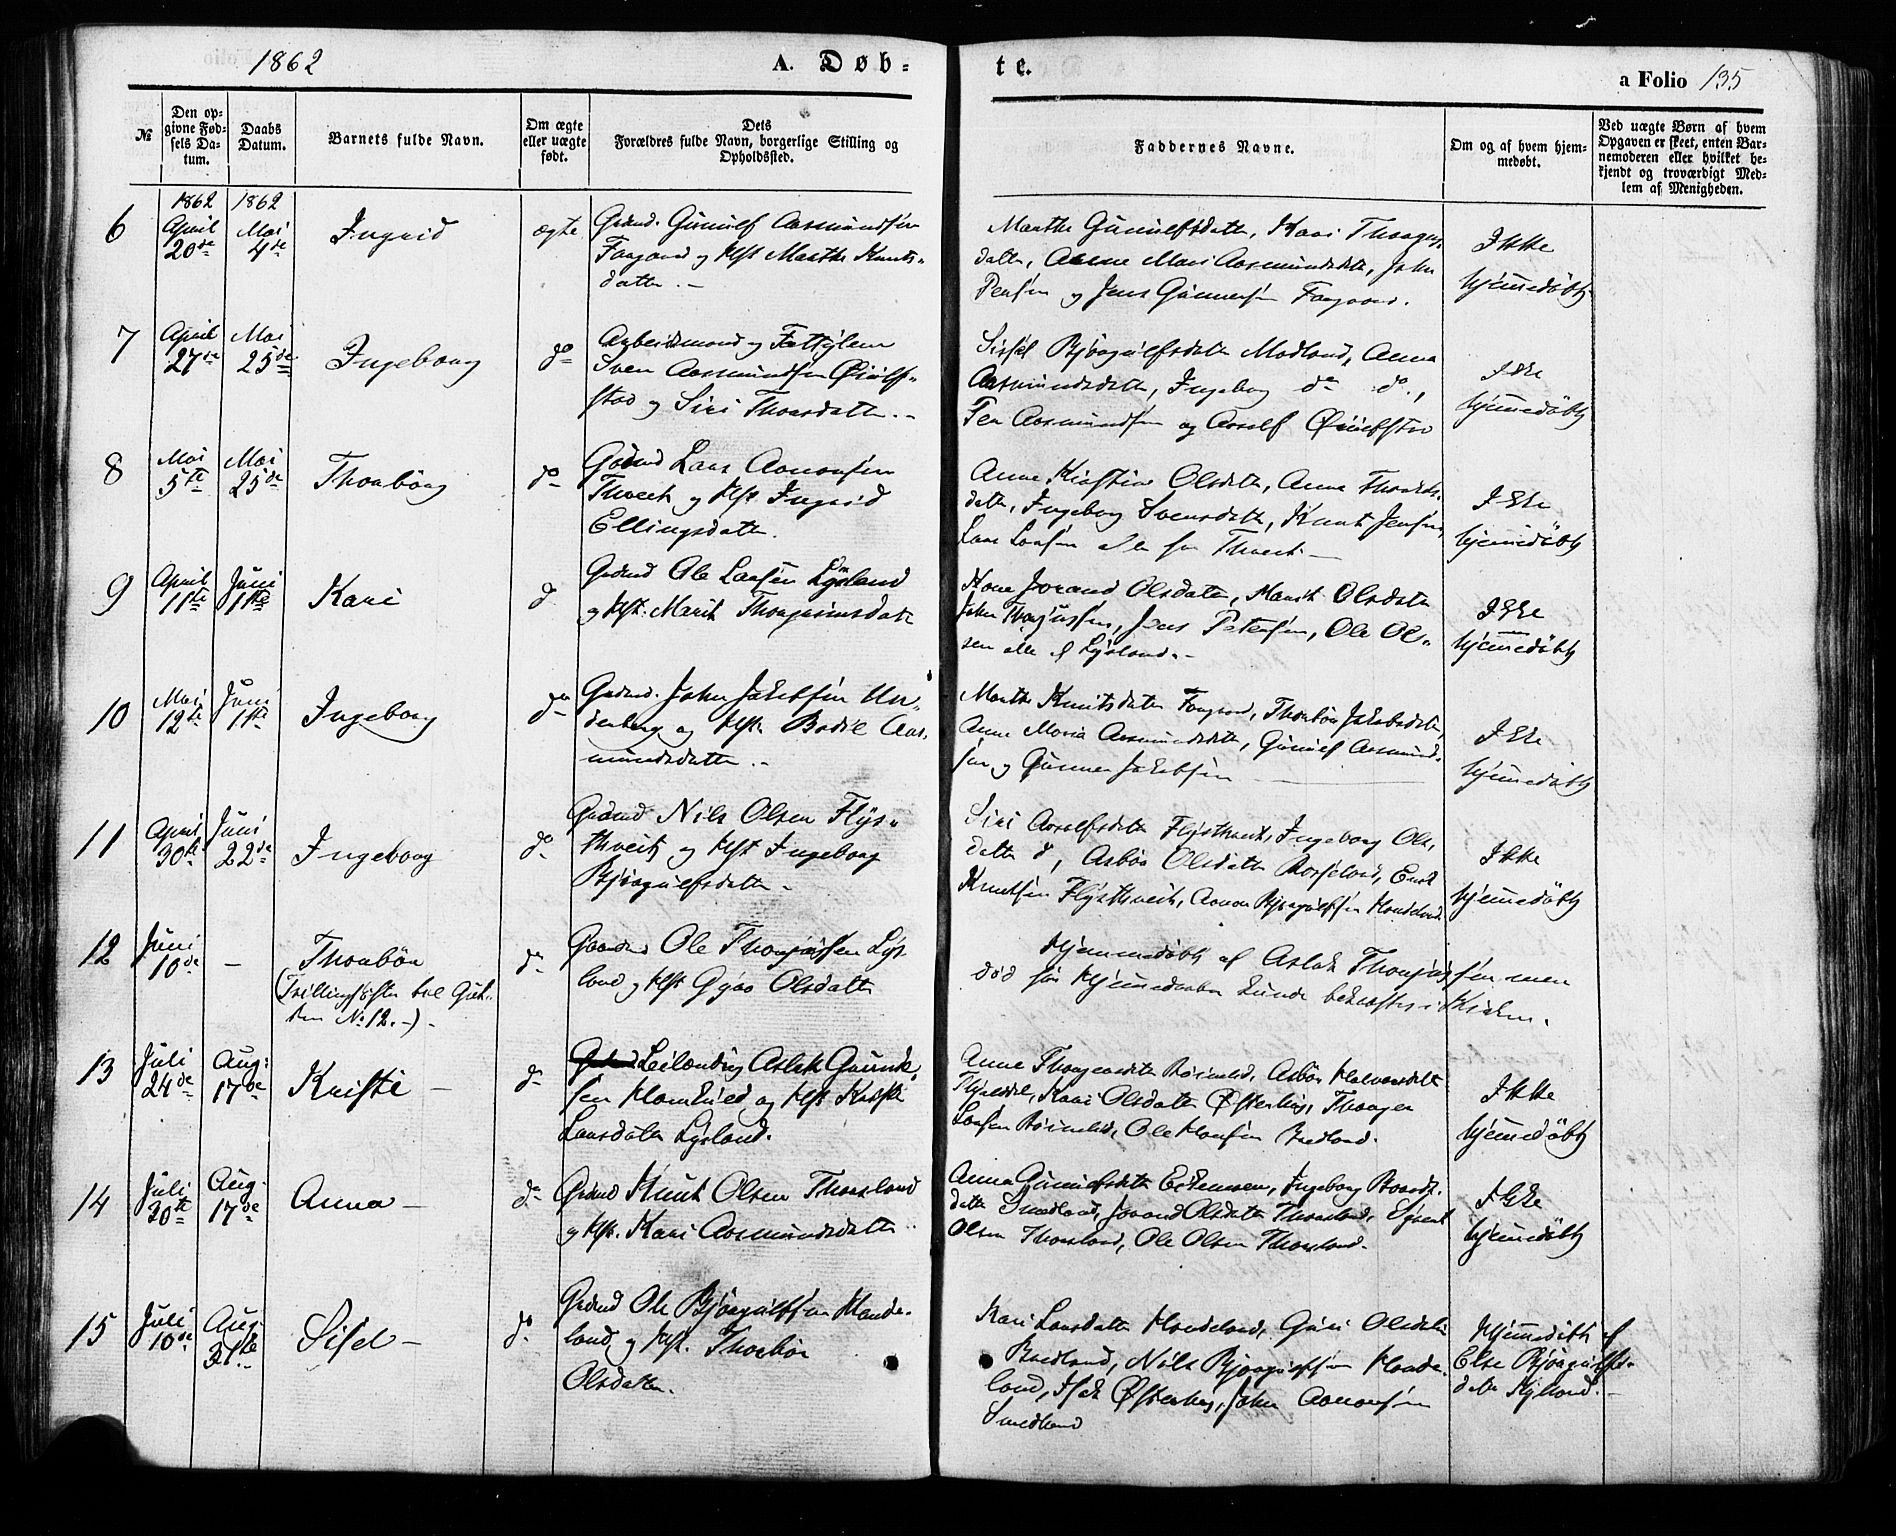 1862
A. Døb-
te.
a Folio 135
№
Den op-
givne Fød-
sels Da-
tum.
Daabs
Datum.
Barnets fulde Navn.
Om ægte
eller uægte
født.
Dets
Forældres fulde Navn, borgerlige Stilling og
Opholdssted.
Faddernes Navne.
Om og af hvem hjem-
medøbt.
Ved uægte Børn af hvem
Opgaven er skeet, enten Bar-
nemoderen eller hvilket be-
kjendt og troværdigt Med-
lem af Menigheden.
1862
1862
6
April
20de
Mai
4de
Ingrid
ægte
Grdmd. Gunulf Aasmundsen
Faagaard og Hst Marthe Knuts-
datter. -
Marthe Gunulfsdatter, Kari Thorges-
datter, Anne Mari Aasmundsdtr, John
Pensen og Jens Gunnersen Faagaard.
Ikke
hjemmedøbt
7
April
27de
Mai
25de
Ingeborg
do
Arbeidsmand og
Sven Aasmundsen Øiulf-
stad og Siri Thorsdatter. -
Sissel Bjørgulfsdatter Modland, Anna
Aasmundsdatter, Ingeborg do do.,
Aasmundsen og Øiulfstad
Ikke
hjemmedøbt
8
Mai
5te
Mai
25de
Thorbørg
do
Grdmd Lars Aanonsen
Thveit og Hst. Ingrid
Ellingsdatter.
Anne Kirstine Olsdatter, Anna
datter, Ingeborg Svensdatter, Knut Jensen,
Lars Larsen alle fra Thveit. -
Ikke
hjemmedøbt
9
April
11te
Juni
1ste
Kari
d
Grdmd Ole Larsen Lysland
og Hst. Marit Thorgrimsdatt
Kone Jorand Olsdatter, Marit Olsdatter
John Thorjussen, Jens Petersen, Ole Ol-
sen alle af Lysland. -
Ikke
hjemmedøbt
10
Mai
12te
Juni
1ste
Ingeborg
do
Grdmd. John Jakobsen Un-
denberg og Hst. Bodil Aas-
mundsdatter. -
Marthe Knutsdatter Faagaard, Thorbør Jakobsdatter,
Anne Maria Aasmundsdatter, Gunulf Aasmund-
sen og Gunner Jakobsen
Ikke
hjemmedøbt
11
April
30te
Juni
22de
Ingeborg
do
Grdmd Nils Olsen Flys-
thveit og Hst Ingeborg
Bjørgulfsdatter -
Siri Aasulfsdatter Flysthveit, Ingeborg Ols-
datter d, Asbør Olsdatter Rosseland,
Knutsen Flysthveit, Aanon Bjørgulfsen Handeland
Ikke
hjemmedøbt
12
Juni
10de
-
Thorbør
(Trillingsøster til Gut-
ten No. 12. -) -
do
Gaardmd Ole Thorjussen Lys-
land og Hst Gyro Olsdatter
Hjemmedøbt af Aslak Thorjussen men
død før Hjemmedaaben kunde bekræftes i Kirken.
13
Juli
24de
Aug:
17de
Kristi -
do
Leilænding Aslak
sen og Hst Kristi
Larsdatter Lysland.
Anne Asbør Halvorsdatt
Kari Olsdatter Østerhus, Thorger
Larsen Ole Hansen Bredland.
Ikke
hjemmedøbt
14
Juli
20te
Aug.
17de
Anna -
do
Grdmd Knut Olsen Thorsland
og Hst. Kari Aasmundsdatter
Anna Gunulfsdatter Ingeborg
datter Smedland, Jorand Olsdatter Thorsland,
Olsen Thorsland, Ole Olsen Thorsland.
Ikke
hjemmedøbt
15
Juli
10de
Aug.
31te
Sisel -
do
Grdmd Ole Bjørgulfsen Hande-
land og Hst. Thorbør
Olsdatter.
Kari Larsdatter Handeland, Guri Olsdatter
Bredland, Nils Bjørgulfsen Hande-
land, Isak Østerhus, John Aanonsen
Smedland
Hjemmedøbt af
Else Bjørgulfs-
datter Kyland. -